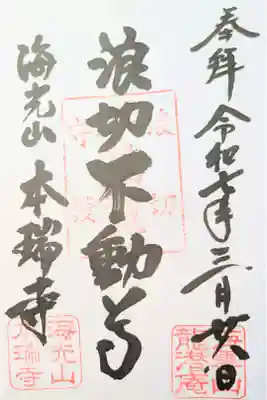 奉拝 令和七年三月廿八日
浪切不動尊
海光山 本瑞寺
海光山
本瑞寺